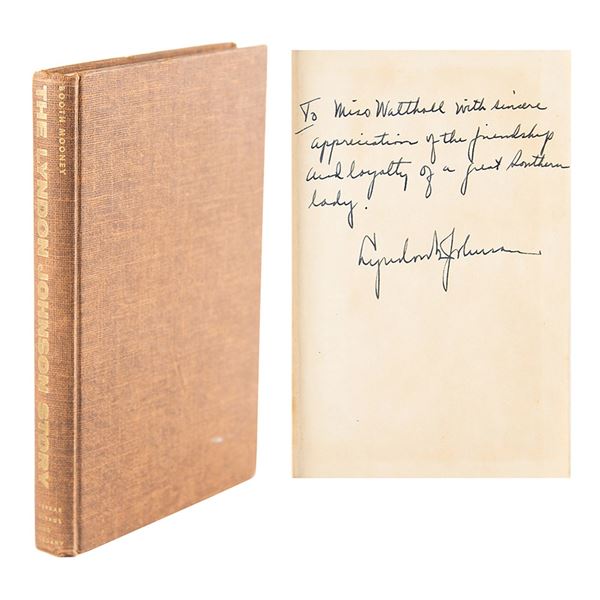 BOOTH MOONEY
THE LYNDON JOHNSON STORY
FARRAR
STRAUS
AND
COMPANY
To Miss Walthall with sincere
appreciation of the friendship
and loyalty of a great Southern
lady.
Lyndon B Johnson